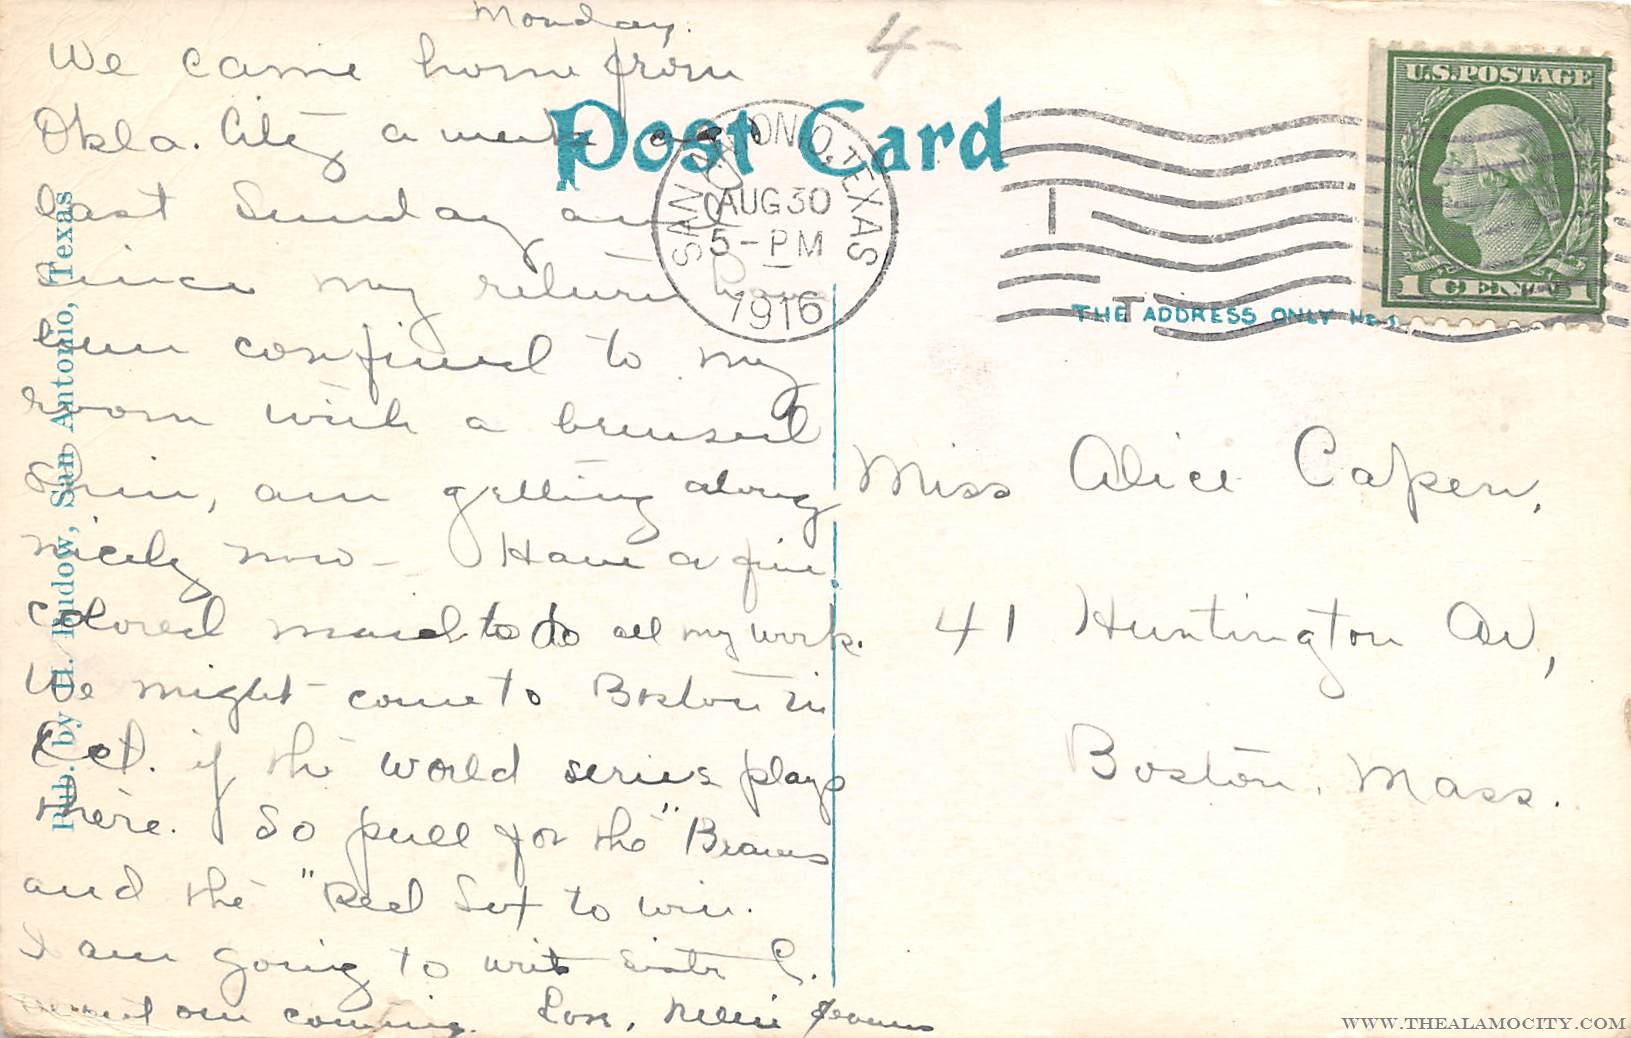 Monday.
We came home from
Okla. City a week ago
last Sunday and
since my return have
been confined to my
room with a bruised
shin, am getting along
nicely now - Have a fine
colored maid to do all my work.
We might come to Boston in
Oct. if the world series plays
there. So pull for the "Braves
and the "Red Sox to win.
I am going to write Sister C.
about our coming. Love, Nellie
4-
Post Card
SAN ANTONIO, TEXAS
AUG 30
5-PM
1916
1
U.S. POSTAGE
1 CENT 1
THE ADDRESS ONLY HE
Miss Alice Capen,
41 Huntington Av,
Boston, Mass.
Pub. by H. Budow, San Antonio, Texas
WWW.THEALAMOCITY.COM